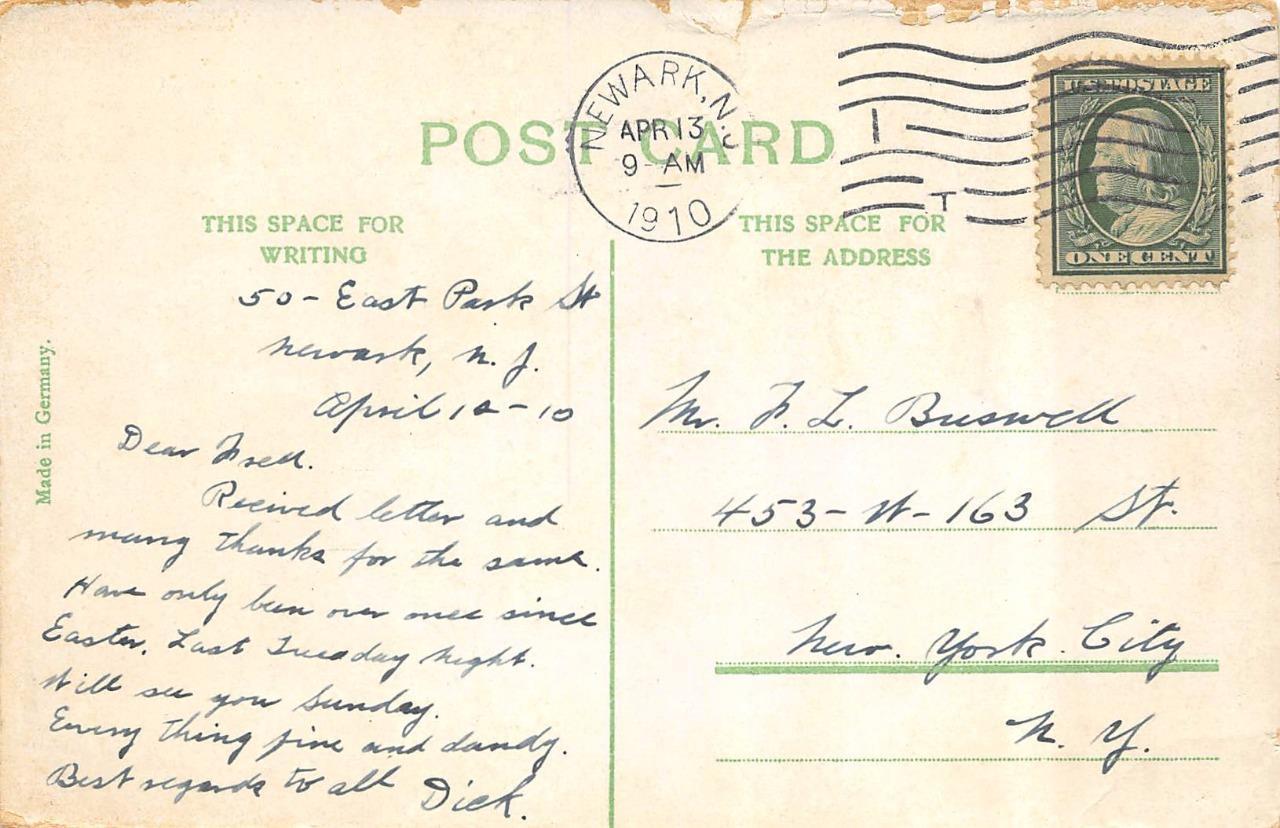 POST CARD
NEWARK, N.J.
APR 13
9-AM
1910
1
T
U.S. POSTAGE
ONE CENT
THIS SPACE FOR
WRITING
THIS SPACE FOR
THE ADDRESS
Made in Germany.
50 - East Park St
Newark, N. J.
April 12-10
Dear Fred.
Recived letter and
many thanks for the same.
Have only been over once since
Easter. Last Tuesday night.
Will see you Sunday.
Every thing fine and dandy.
Best regards to all Dick.
Mr. F. L. Buswell
453- W- 163 St.
New. York. City
N. Y.